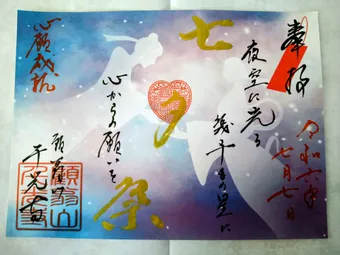 奉拝
令和六年
七月七日
夜空に光る
幾千もの星に
七夕祭
心からの願いを
心願成就
千光寺